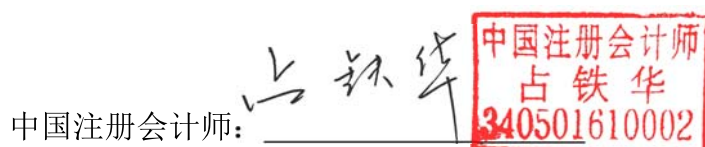 中国注册会计师:占铁华
中国注册会计师
占铁华
340501610002